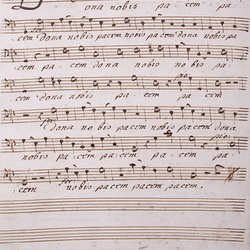 ona nobis pa - cem - pa -
cem dona nobis pacem nobis pacem dona nobis pa
cem pa - cem dona nobis - pa -
cem - dona nobis - pacem - pacem -
dona nobis pacem nobis pacem dona
nobis pacem pacem pacem - pa -
cem nobis pacem pacem pacem.